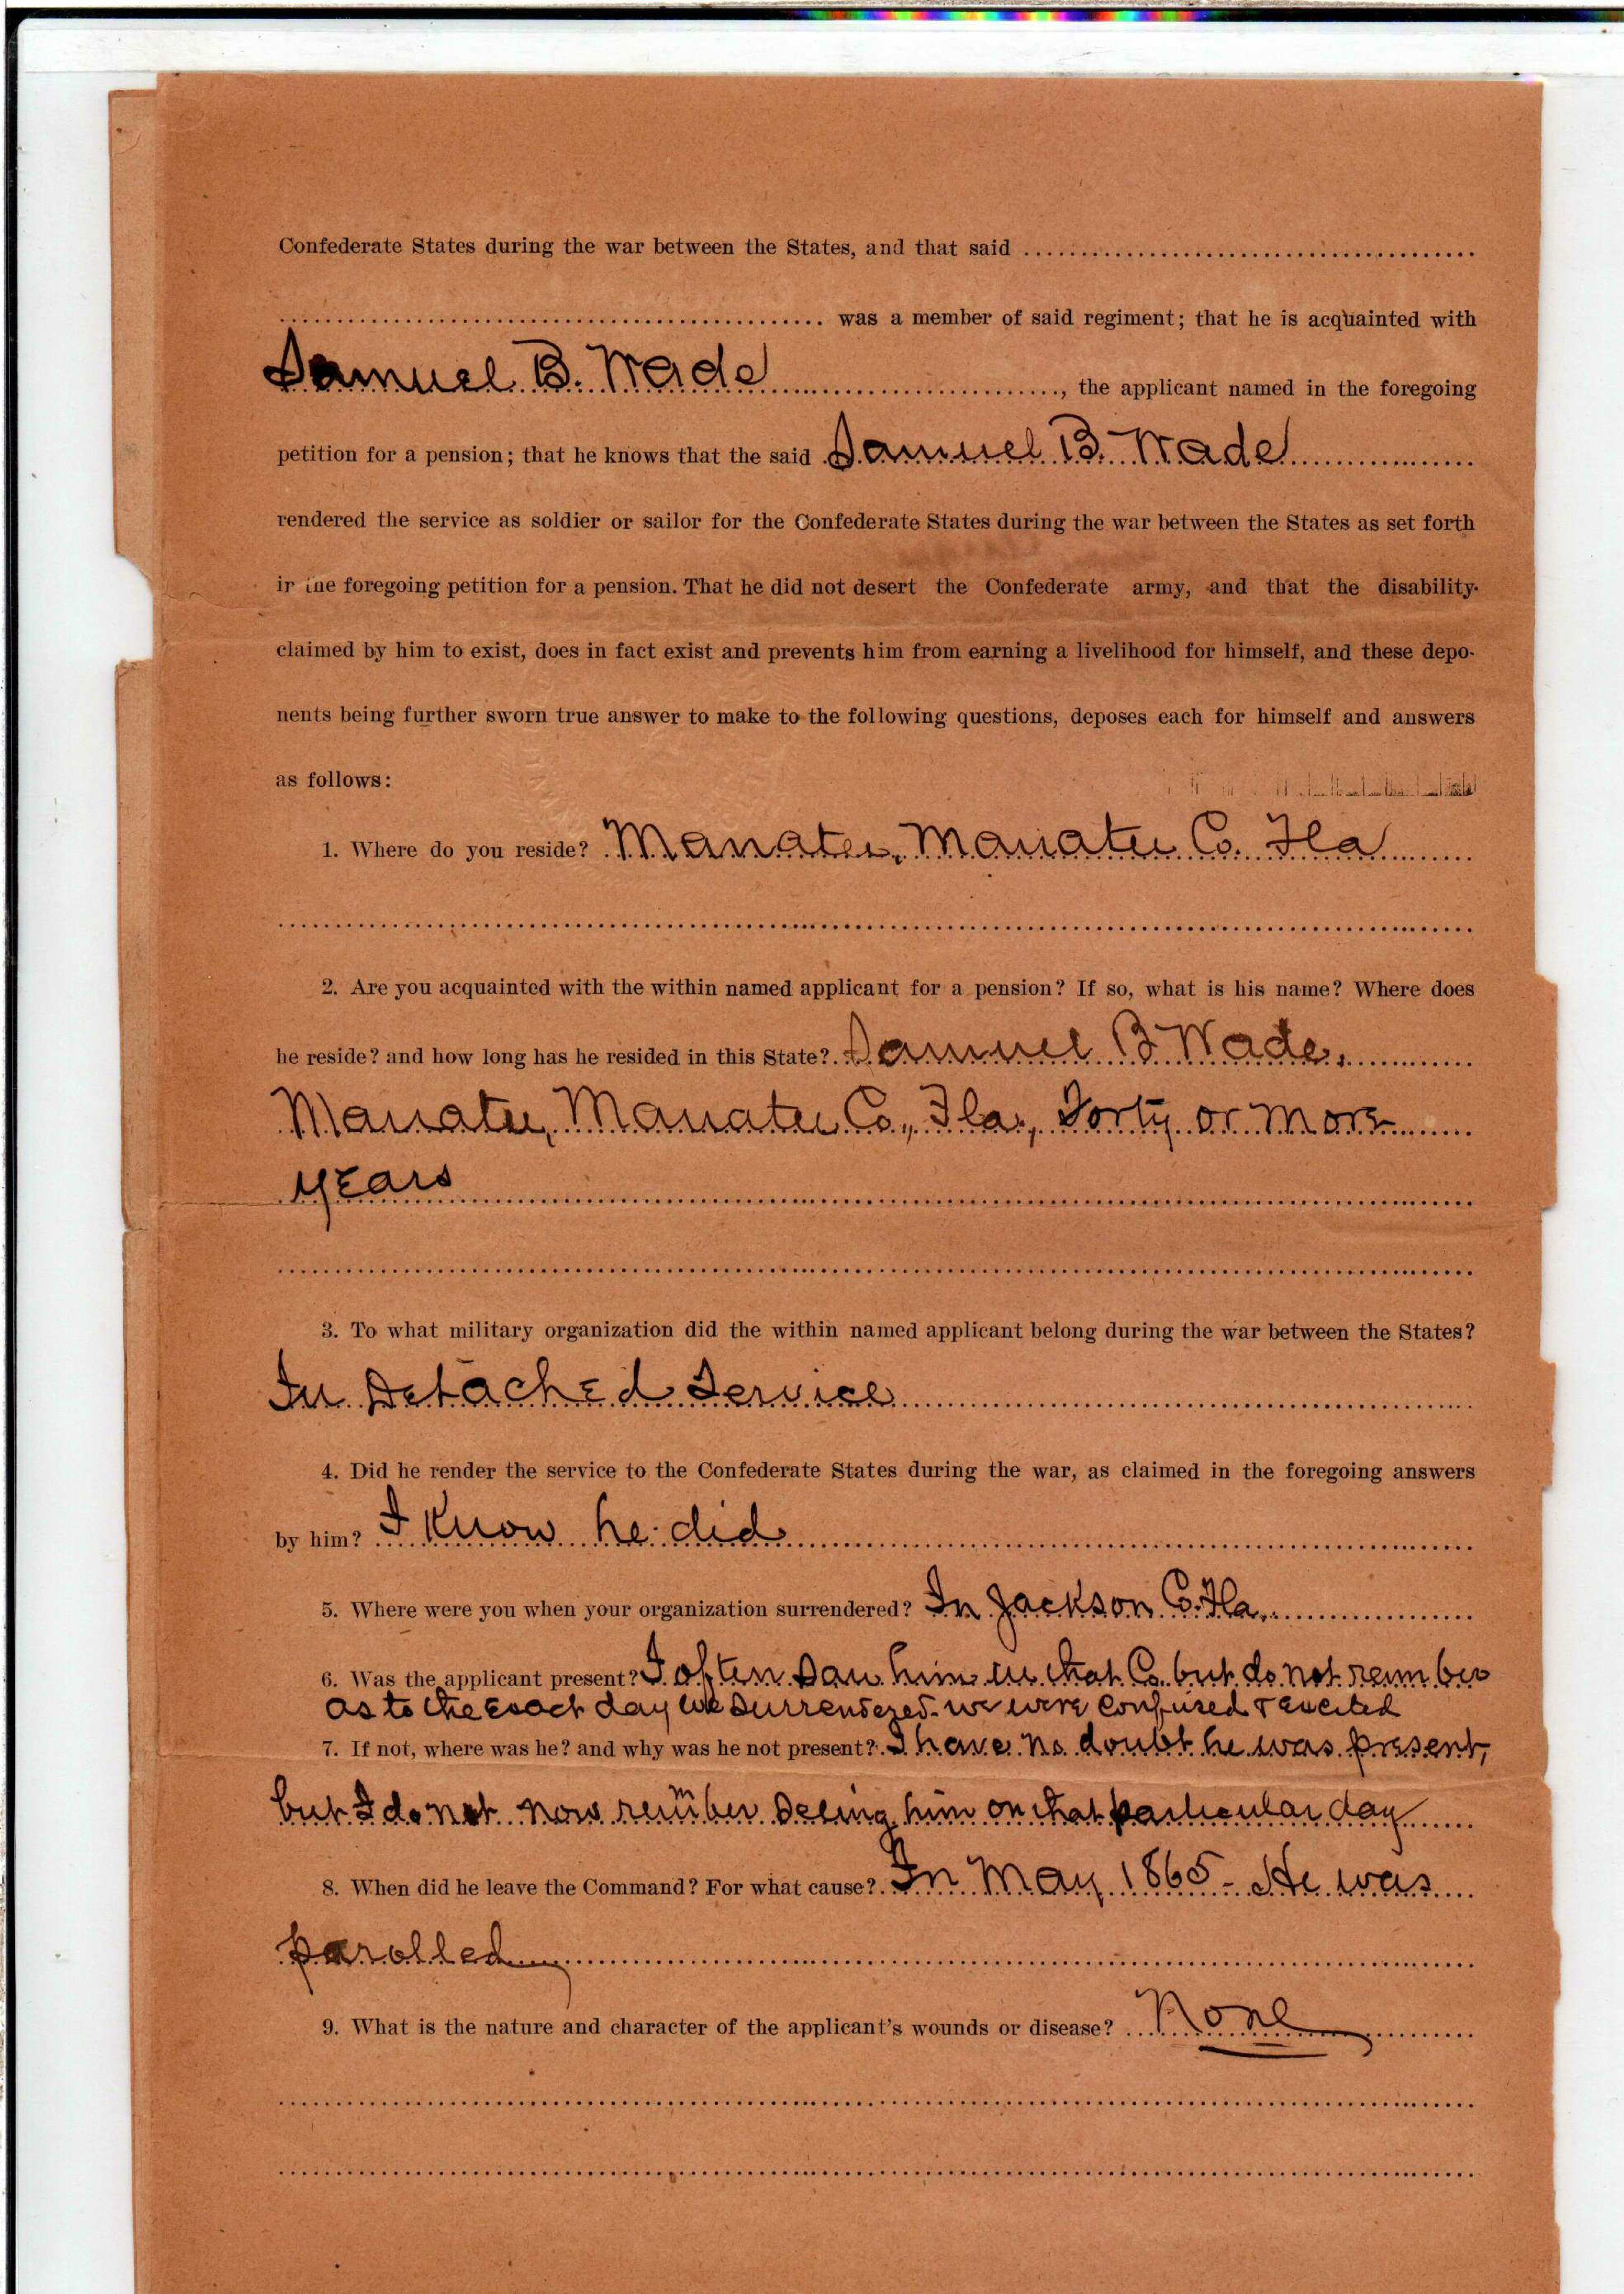 Confederate States during the war between the States, and that said
was a member of said regiment; that he is acquainted with
Samuel B. Wade, the applicant named in the foregoing
petition for a pension; that he knows that the said Samuel B. Wade
rendered the service as soldier or sailor for the Confederate States during the war between the States as set forth
in the foregoing petition for a pension. That he did not desert the Confederate army, and that the disability
claimed by him to exist, does in fact exist and prevents him from earning a livelihood for himself, and these depo-
nents being further sworn true answer to make to the following questions, deposes each for himself and answers
as follows:
1. Where do you reside? Manatee, Manatee Co. Fla
2. Are you acquainted with the within named applicant for a pension? If so, what is his name? Where does
he reside? and how long has he resided in this State? Samuel B Wade,
Manatee, Manatee Co., Fla., Forty or more
years
3. To what military organization did the within named applicant belong during the war between the States?
In Detached Service
4. Did he render the service to the Confederate States during the war, as claimed in the foregoing answers
by him? I Know he did
5. Where were you when your organization surrendered? In Jackson Co. Fla.
6. Was the applicant present? I often saw him in that Co. but do not remmber
as to the exact day we surrendered. we were confused & excited
7. If not, where was he? and why was he not present? I have no doubt he was present,
but I do not now remmber seeing him on that particular day
8. When did he leave the Command? For what cause? In May 1865 - He was
parolled
9. What is the nature and character of the applicant's wounds or disease? None